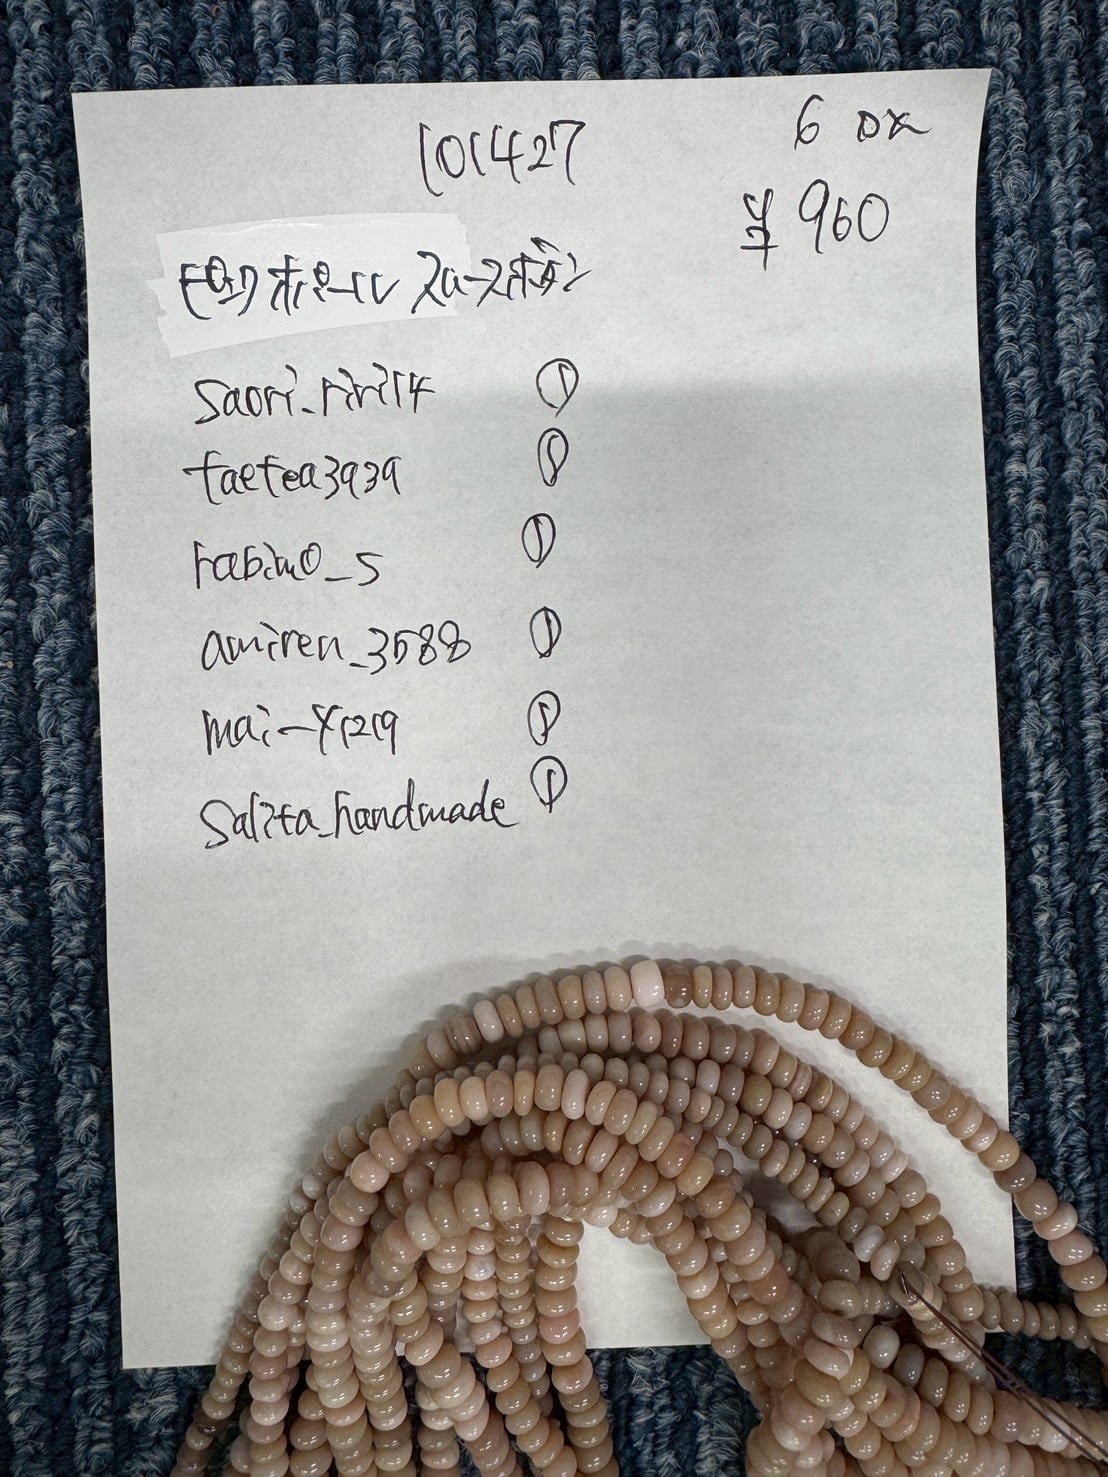 101427
6 ox
¥960
ピンクオパール スムースボタン
saori_riri14
taetea3939
rabimo_s
amiren_3588
mai_y1219
salita_handmade ①
①
①
①
①
①